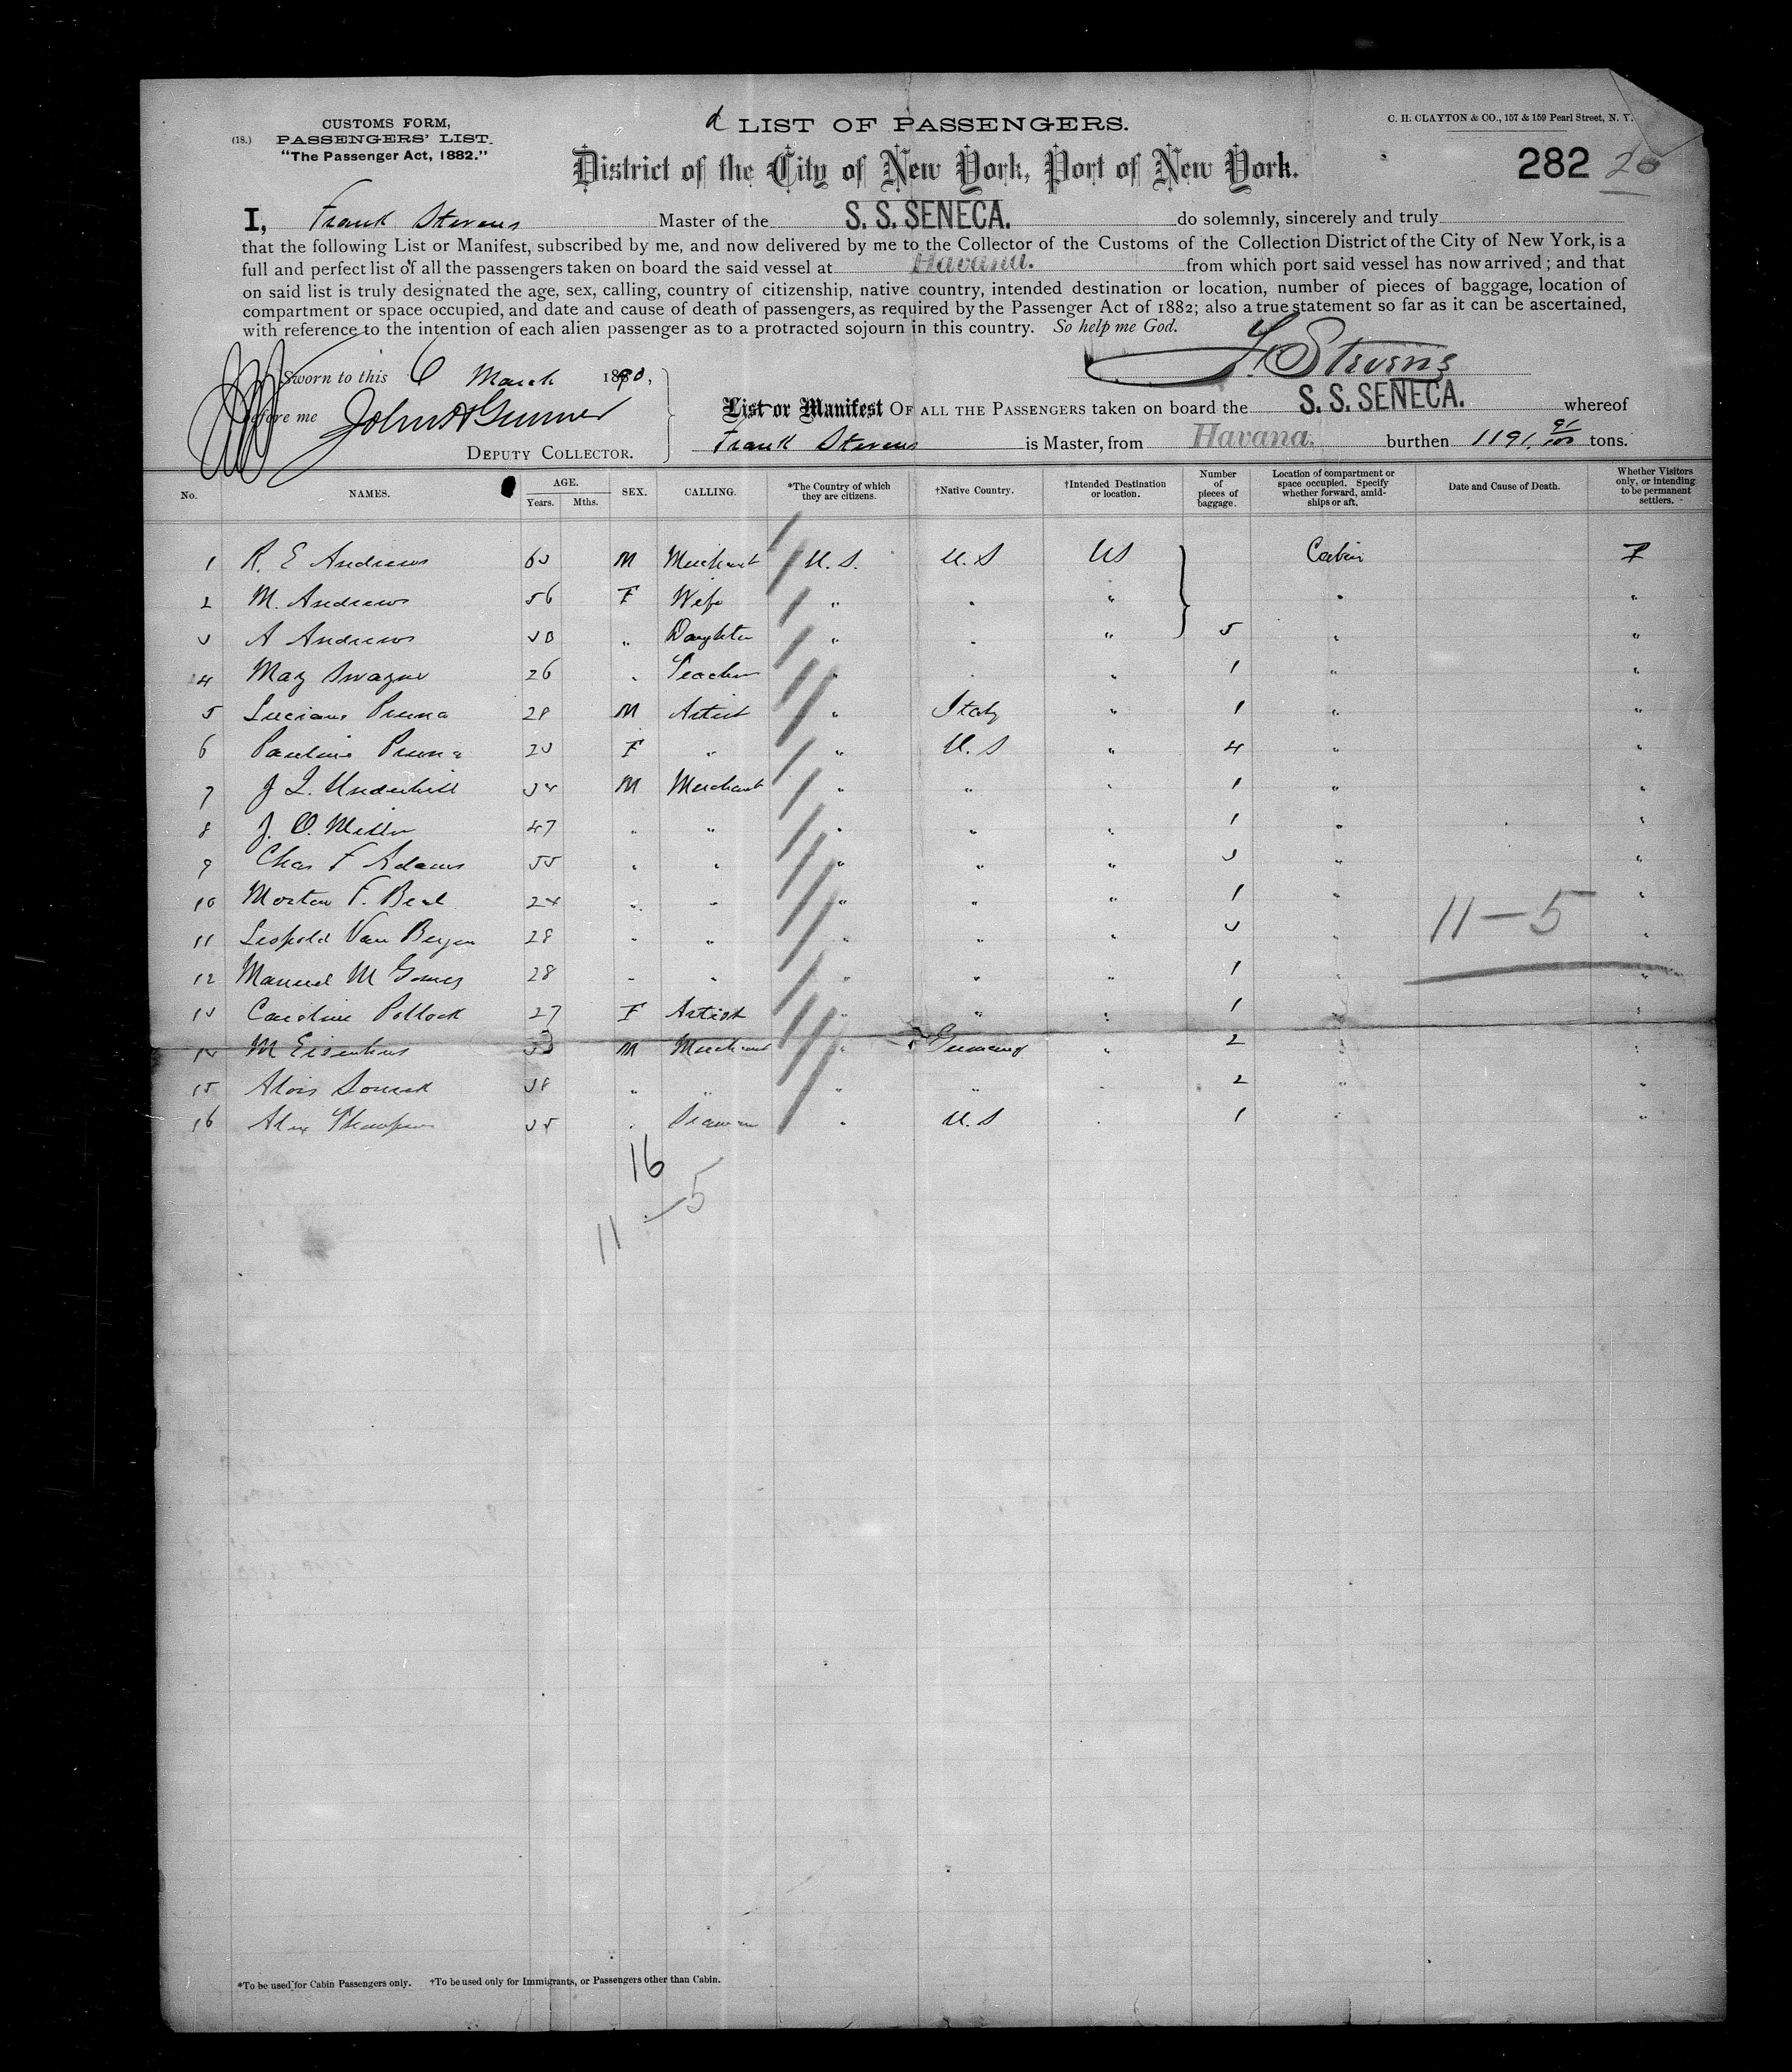 CUSTOMS FORM,
(18.) PASSENGERS' LIST.
"The Passenger Act, 1882."
LIST OF PASSENGERS.
C. H. CLAYTON & CO., 157 & 159 Pearl Street, N. Y.
District of the City of New York, Port of New York.
282
I, Frank Stevens Master of the S. S. SENECA. do solemnly, sincerely and truly
that the following List or Manifest, subscribed by me, and now delivered by me to the Collector of the Customs of the Collection District of the City of New York, is a
full and perfect list of all the passengers taken on board the said vessel at Havana. from which port said vessel has now arrived; and that
on said list is truly designated the age, sex, calling, country of citizenship, native country, intended destination or location, number of pieces of baggage, location of
compartment or space occupied, and date and cause of death of passengers, as required by the Passenger Act of 1882; also a true statement so far as it can be ascertained,
with reference to the intention of each alien passenger as to a protracted sojourn in this country. So help me God.
F. Stevens
Sworn to this 6 March 1890,
before me
DEPUTY COLLECTOR.
List or Manifest OF ALL THE PASSENGERS taken on board the S. S. SENECA. whereof
Frank Stevens is Master, from Havana. burthen 1191 91/100 tons.
No. NAMES. AGE. Years. Mths. SEX. CALLING. *The Country of which they are citizens. †Native Country. †Intended Destination or location. Number of pieces of baggage. Location of compartment or space occupied. Specify whether forward, amidships or aft. Date and Cause of Death. Whether Visitors only, or intending to be permanent settlers.
1 R. E Andrews M Merchant U. S. U. S US Cabin
2 M. Andrews 56 F Wife " " " " "
3 A Andrews " Daughter " " " " "
4 May 26 " Teacher " " " 1 " "
5 28 M Artist " Italy " 1 " "
6 Pauline F " " U. S " 4 " "
7 J L. Underhill 34 M Merchant " " " 1 " "
8 J. O. Miller 47 " " " " " 1 " "
9 Chas F Adams 55 " " " " " 3 " "
10 Morton F. Beal 24 " " " " " 1 " "
11 Leopold Van Bergen 28 " " " " " 3 " "
12 Manuel M Gomez 28 " " " " " 1 " "
13 Caroline Pollock 27 F Artist " " " 1 " "
14 M M Merchant " Germany " 2 " "
15 Alois 38 " " " " " 2 " "
16 Alex Thompson 35 " Seaman " U. S " 1 " "
11-5
16
11-5
*To be used for Cabin Passengers only. †To be used only for Immigrants, or Passengers other than Cabin.